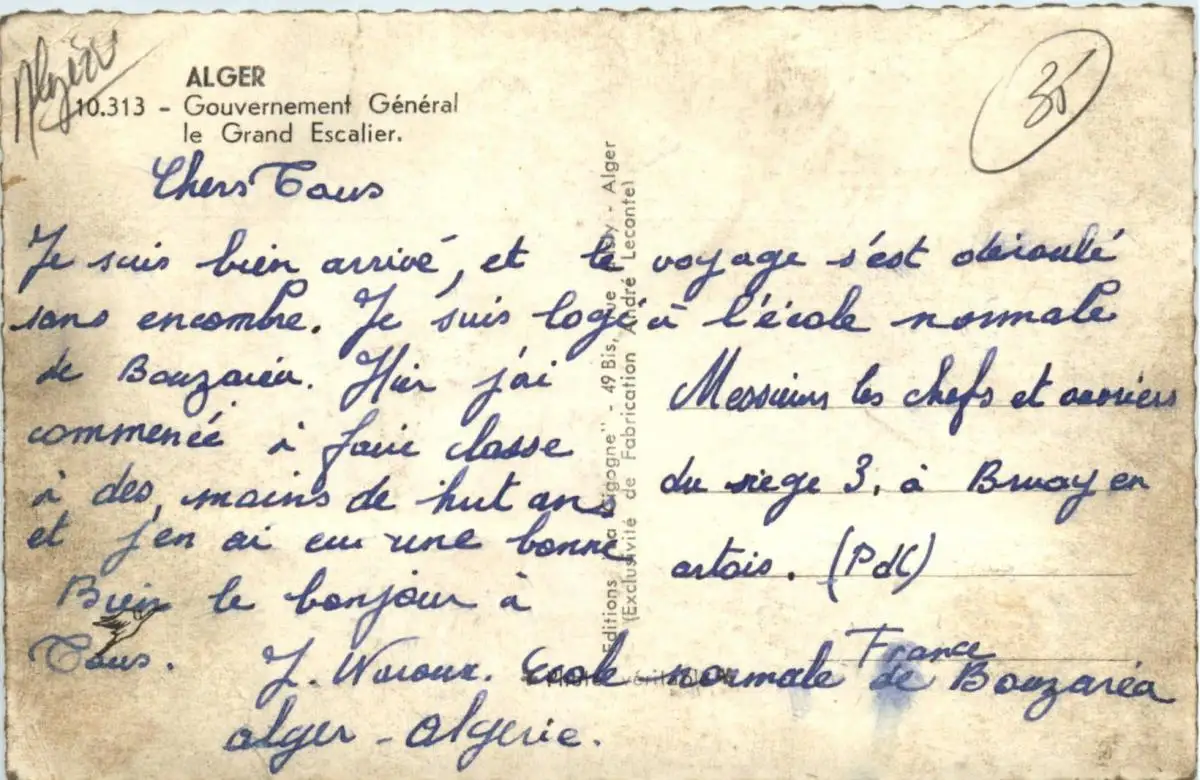 Algérie
35
ALGER
10.313 - Gouvernement Général
le Grand Escalier.
Chers Tous
Je suis bien arrivé, et le voyage s'est déroulé
sans encombre. Je suis logé à l'école normale
de Bouzaréa. Hier j'ai
commencé à faire classe
à des, moins de huit ans
et j'en ai eu une bonne
Bien le bonjour à
Tous.
J. Waroux. Ecole normale de Bouzaréa
alger - algerie.
Editions "La Cigogne" - 49 Bis, - Alger
(Exclusivité de Fabrication André Leconte)
Messieurs les chefs et ouvriers
du siège 3, à Bruay en
artois. (PdC)
France